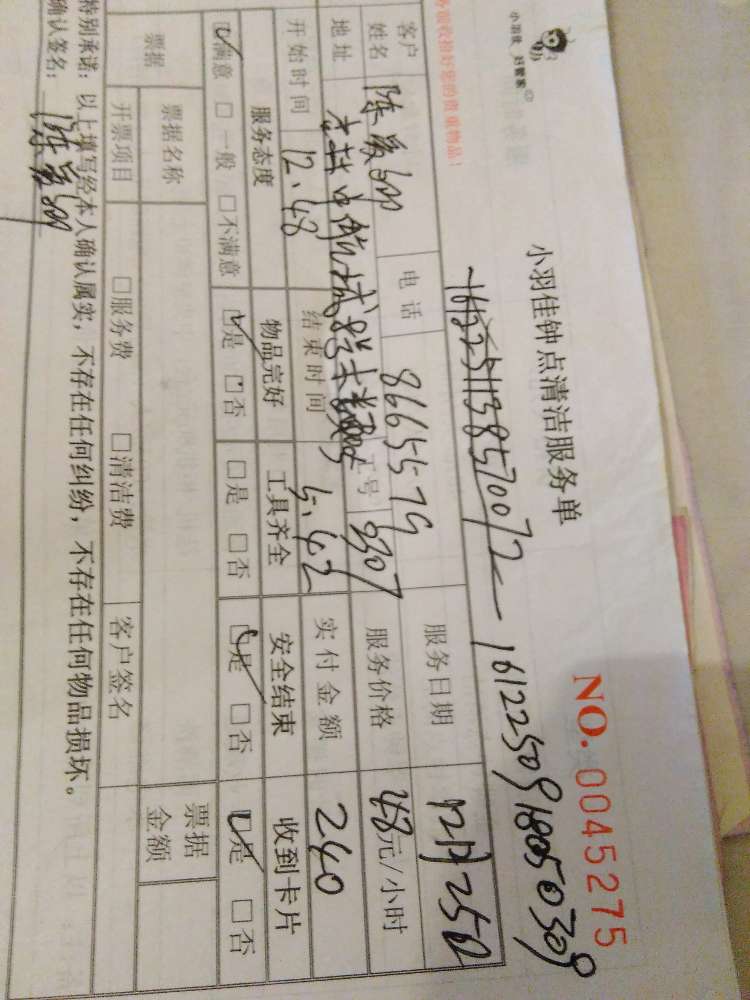 小羽佳 妇管家
小羽佳钟点清洁服务单
NO. 0045275
收拾好您的贵重物品!
16122509180050309
客户姓名 电话 8665579 服务日期 12月25日
地址 工号 8307 服务价格 48元/小时
开始时间 12.48 结束时间 5.42 实付金额 240
服务态度 物品完好 工具齐全 安全结束 收到卡片
☑满意 □一般 □不满意 ☑是 □否 □是 □否 ☑是 □否 ☑是 □否
票据 票据名称 票据金额
开票项目 □服务费 □清洁费 客户签名
特别承诺:以上填写经本人确认属实,不存在任何纠纷,不存在任何物品损坏。
确认签名: